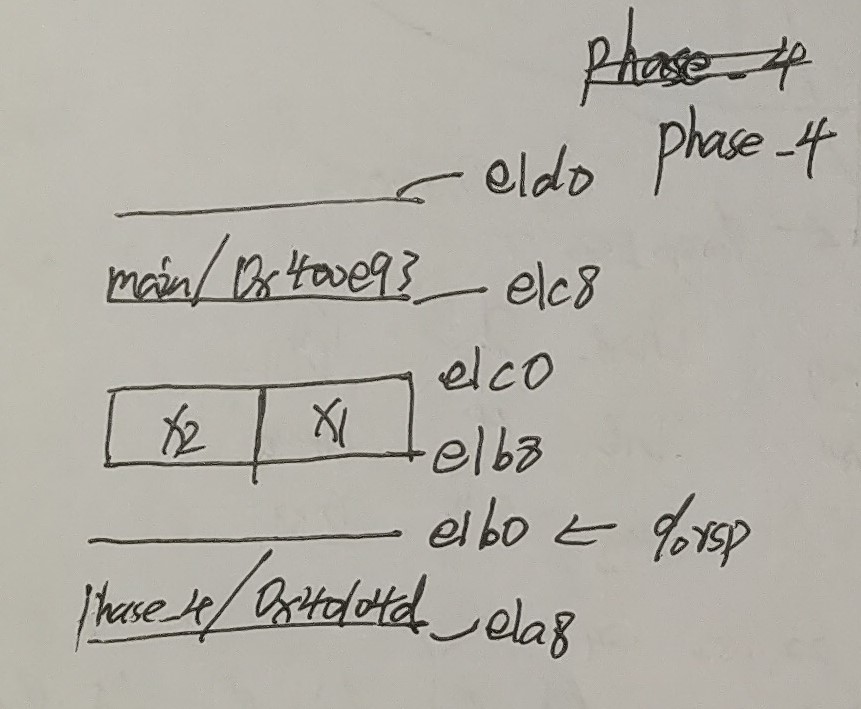 phase_4
phase_4
e1d0
main/0x400e93 e1c8
e1c0
x2 x1
e1b8
e1b0 ← %rsp
phase_4/0x40104d e1a8